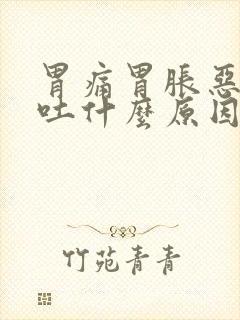 胃痛胃脹惡
吐什麼原因
竹苑青青